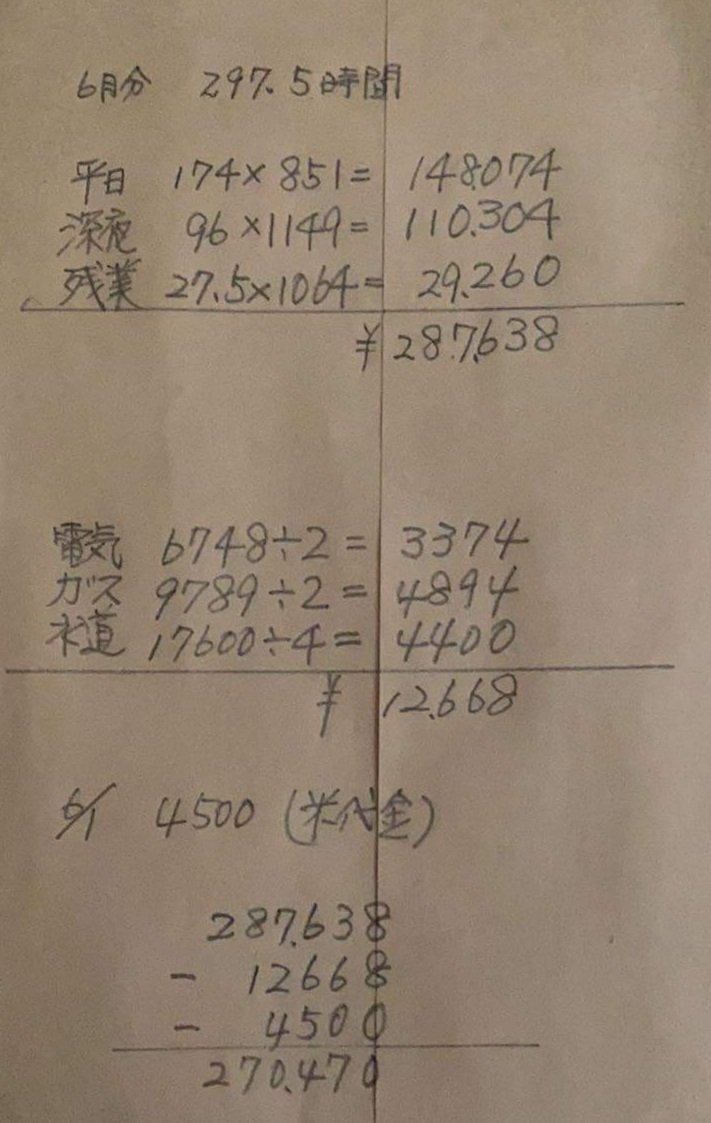 6月分 297.5時間
平日 174×851= 148.074
深夜 96×1149= 110.304
残業 27.5×1064= 29.260
¥287.638
電気 6748÷2= 3374
ガス 9789÷2= 4894
水道 17600÷4= 4400
¥ 12.668
6/1 4500 (米代金)
287.638
- 12668
- 4500
270.470